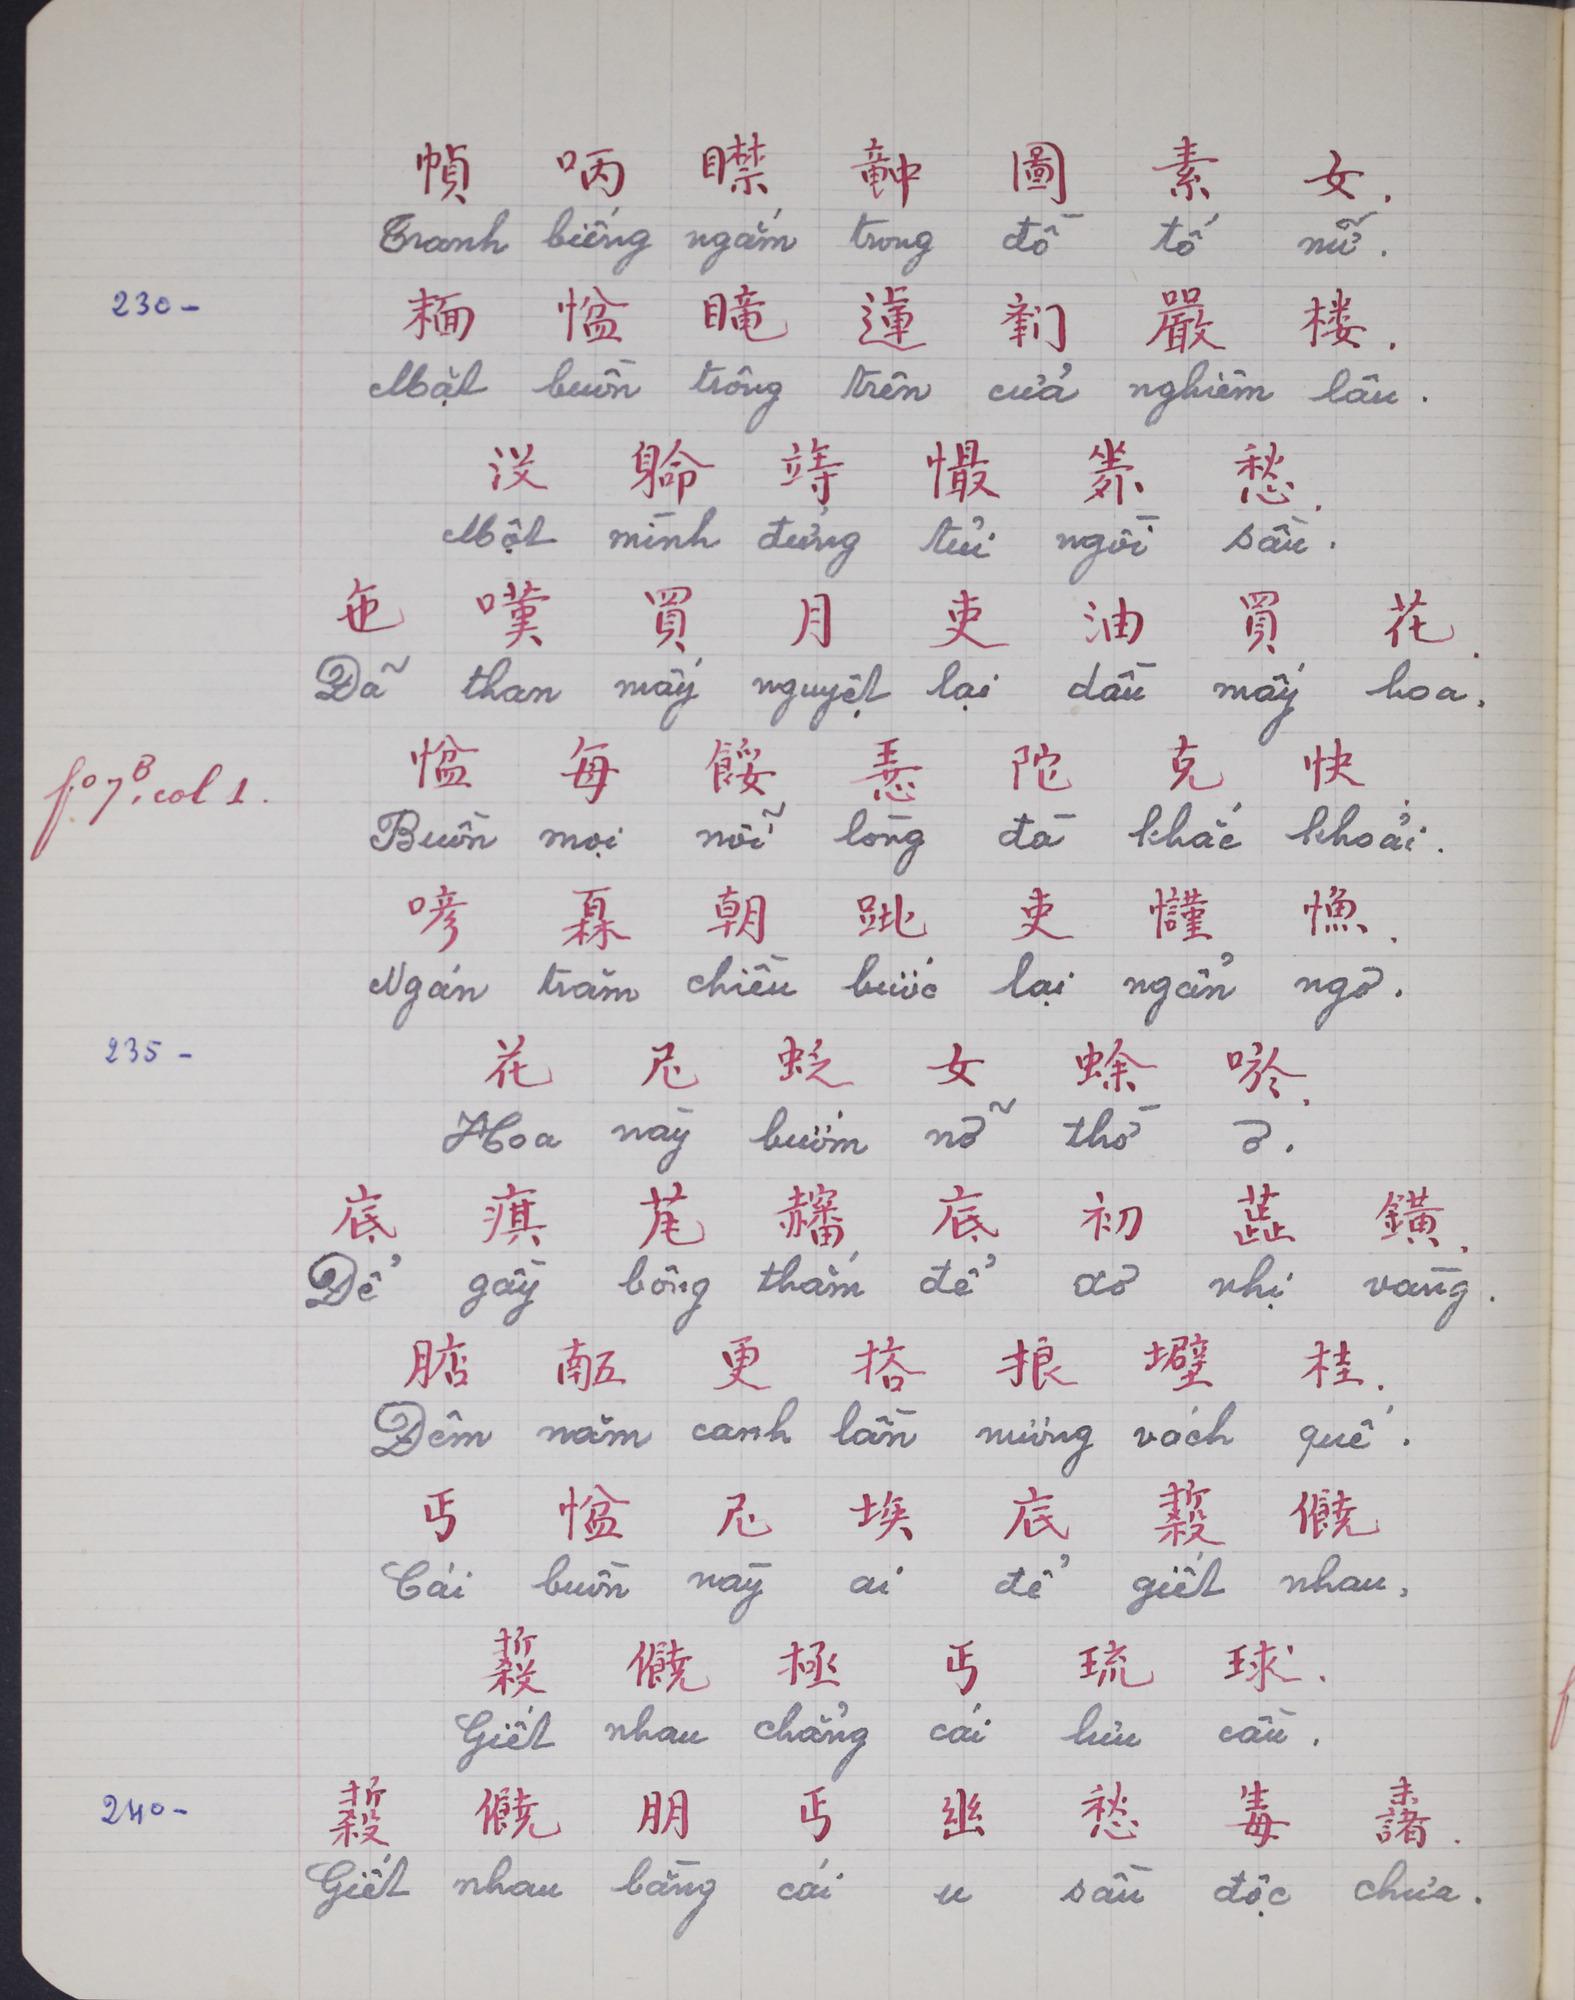 幀 㕷 𥋴 𥪞 圖 素 女.
Tranh biếng ngắm trong đồ tố nữ.
230-
𩈘 㥪 𥊣 蓮 𨷶 嚴 楼.
Mặt buồn trông trên cửa nghiêm lâu.
没 躮 竴 𢢇 𡎥 愁.
Một mình đứng tủi ngồi sầu.
㐌 嘆 買 月 吏 油 買 花.
Đã than mấy nguyệt lại dầu mấy hoa.
fº 7B, col 1.
㥪 每 餒 𢚸 陀 克 快
Buồn mọi nỗi lòng đà khắc khoải.
喭 𤾓 朝 𨀈 吏 𢤞 𢠐.
Ngán trăm chiều bước lại ngẩn ngơ.
235-
花 尼 𧊉 女 蜍 唹.
Hoa này bướm nỡ thờ ơ.
底 𤷍 芼 𧹰 底 初 蘂 鐄.
Để gầy bông thắm để xơ nhị vàng.
𣎀 𠄼 更 搭 挭 壁 桂.
Đêm năm canh lần nương vách quế.
丐 㥪 尼 埃 底 𣩂 饒
Cái buồn này ai để giết nhau,
𣩂 饒 拯 丐 琉 球.
Giết nhau chẳng cái lưu cầu.
240-
𣩂 饒 朋 丐 幽 愁 毒 渚.
Giết nhau bằng cái u sầu độc chưa.